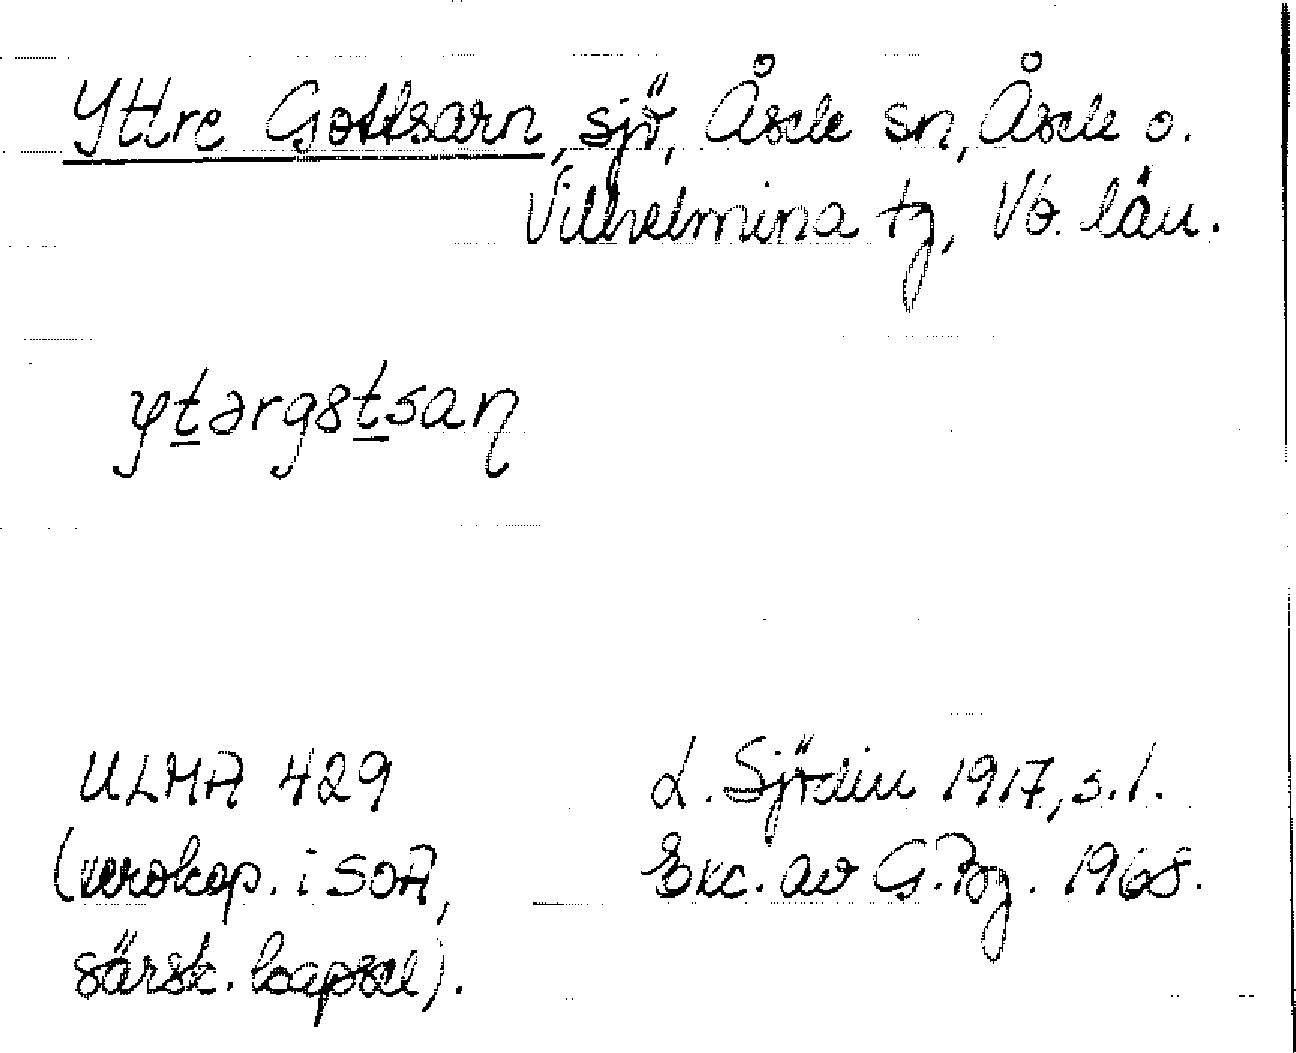 Yttre Gottsarn, sjö, Åsele sn, Åsele o.
Vilhelmina tg, Vb. län.
yt̲ərgɞt̲saɳ
ULMA 429
(xerokop. i SOA,
särsk. kapsel).
L. Sjödin 1917, s. 1.
Exc. av G. Bg. 1968.